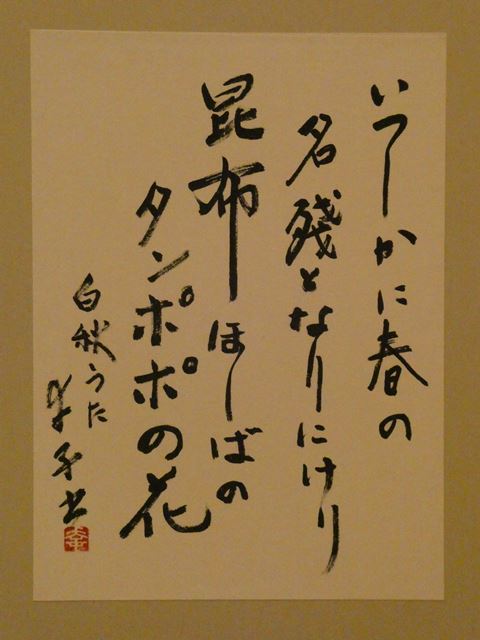 いつしかに春の
名残となりにけり
昆布ほしばの
タンポポの花
白秋うた